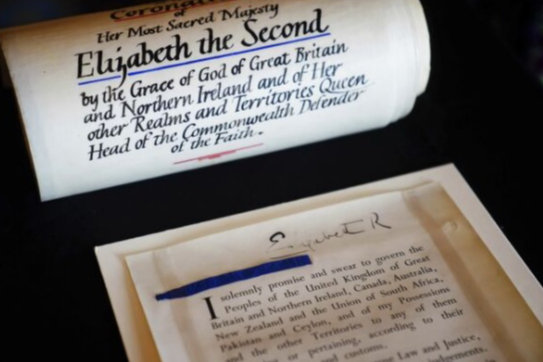 Coronation
of
Her Most Sacred Majesty
Elizabeth the Second
by the Grace of God of Great Britain
and Northern Ireland and of Her
other Realms and Territories Queen
Head of the Commonwealth Defender
of the Faith.
Elizabeth R
I solemnly promise and swear to govern the
Peoples of the United Kingdom of Great
Britain and Northern Ireland, Canada, Australia,
New Zealand and the Union of South Africa,
Pakistan and Ceylon, and of my Possessions
and the other Territories to any of them
or pertaining, according to their
and customs.
Law and Justice,